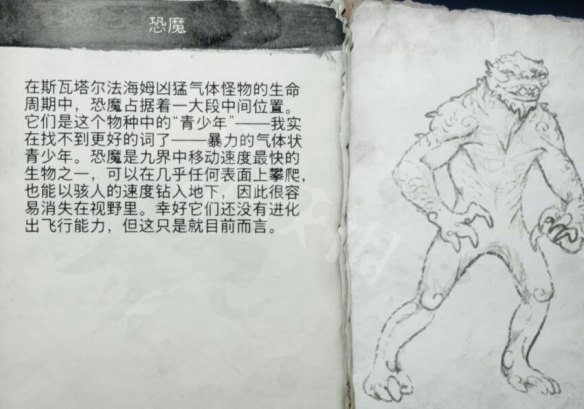 恐魔
在斯瓦塔尔法海姆凶猛气体怪物的生命
周期中，恐魔占据着一大段中间位置。
它们是这个物种中的“青少年”——我实
在找不到更好的词了——暴力的气体状
青少年。恐魔是九界中移动速度最快的
生物之一，可以在几乎任何表面上攀爬，
也能以骇人的速度钻入地下，因此很容
易消失在视野里。幸好它们还没有进化
出飞行能力，但这只是就目前而言。